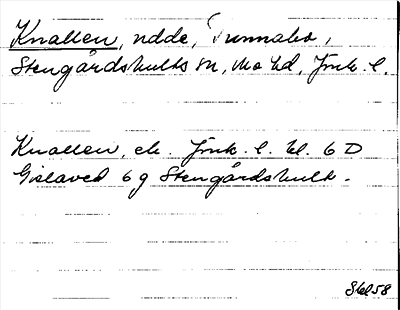 Knallen, udde, Tunnabo,
Stengårdshults sn, Mo hd, Jmk. l.
Knallen, ek. Jmk. l. bl. 6 D
Gislaved 6 g Stengårdshult.